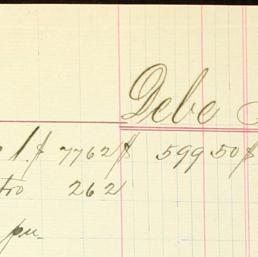 Debe
1. $ 7762 $ 599 50 $
tro 262
pu-